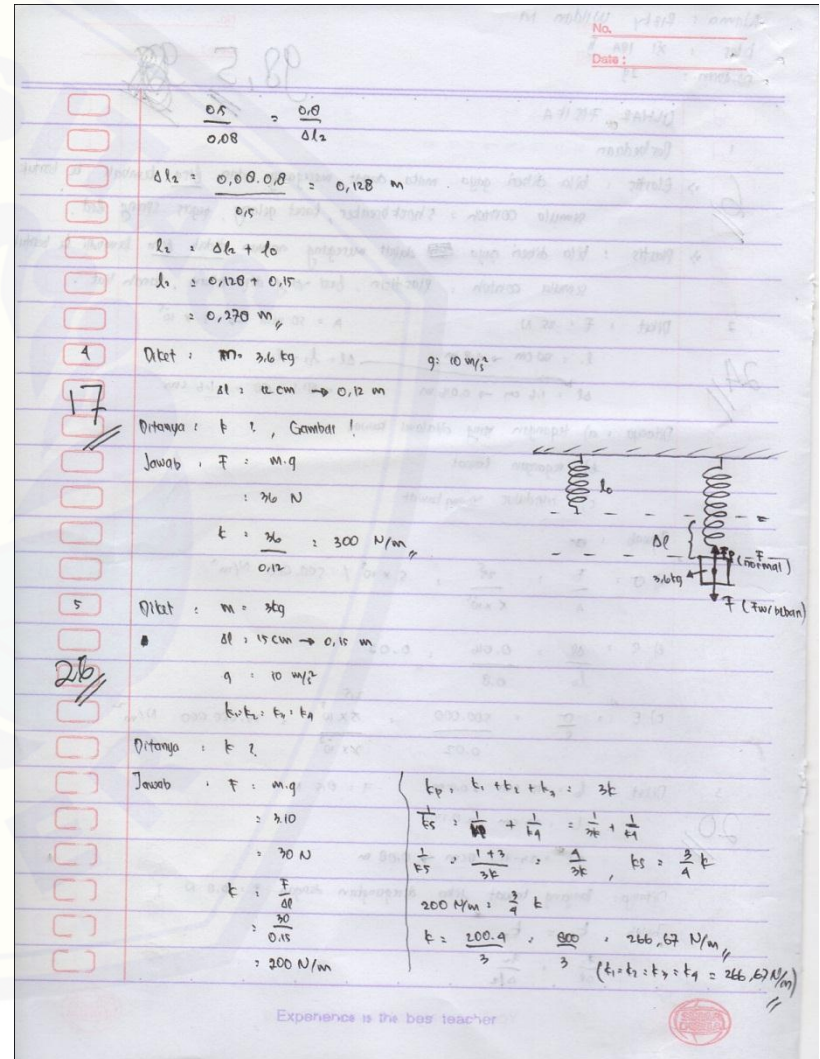 No.
Date :
98,5
0,5 / 0,08 = 0,8 / Δl2
Δl2 = 0,08 . 0,8 / 0,5 = 0,128 m
l2 = Δl2 + l0
l2 = 0,128 + 0,15
= 0,278 m
4 Diket : m = 3,6 kg g = 10 m/s²
Δl = 12 cm → 0,12 m
17
Ditanya : k ?, Gambar !
Jawab : F = m.g
= 36 N
k = 36 / 0,12 = 300 N/m
l0
Δl
F (normal)
3,6 kg
F (Fw/beban)
5 Diket : m = 3kg
Δl = 15 cm → 0,15 m
26
g = 10 m/s²
k1=k2=k3=k4
Ditanya : k ?
Jawab : F = m.g
= 3.10
= 30 N
k = F / Δl
= 30 / 0,15
= 200 N/m
kp = k1 + k2 + k3 = 3k
1/ks = 1/kp + 1/k4 = 1/3k + 1/k4
1/ks = 1+3 / 3k = 4/3k , ks = 3/4 k
200 N/m = 3/4 k
k = 200.4 / 3 = 800 / 3 = 266,67 N/m
(k1=k2=k3=k4 = 266,67 N/m)
Experience is the best teacher